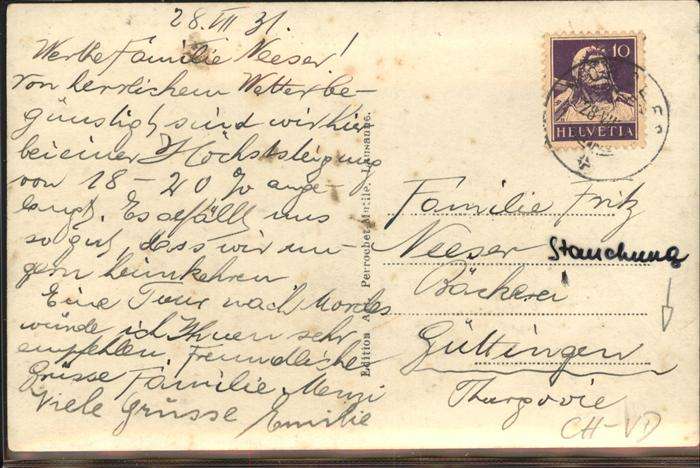 28. VII 31.
Werthe Familie Neeser!
Von herrlichem Wetter be-
günstigt sind wir hier
bei einer Höchststeigung
von 18 - 20 % ange-
langt. Es gefällt uns
so gut, dass wir un-
gern heimkehren
Eine Tour nach
würde ich Ihnen sehr
empfehlen. Freundliche
Grüsse Familie
Viele Grüsse Emilie
Edition A. Perrochet-Matile, Lausanne.
10
HELVETIA
28.VII
Familie Fritz
Neeser Stauchung
Bäckerei
Güttingen
Thurgovie
CH-VD